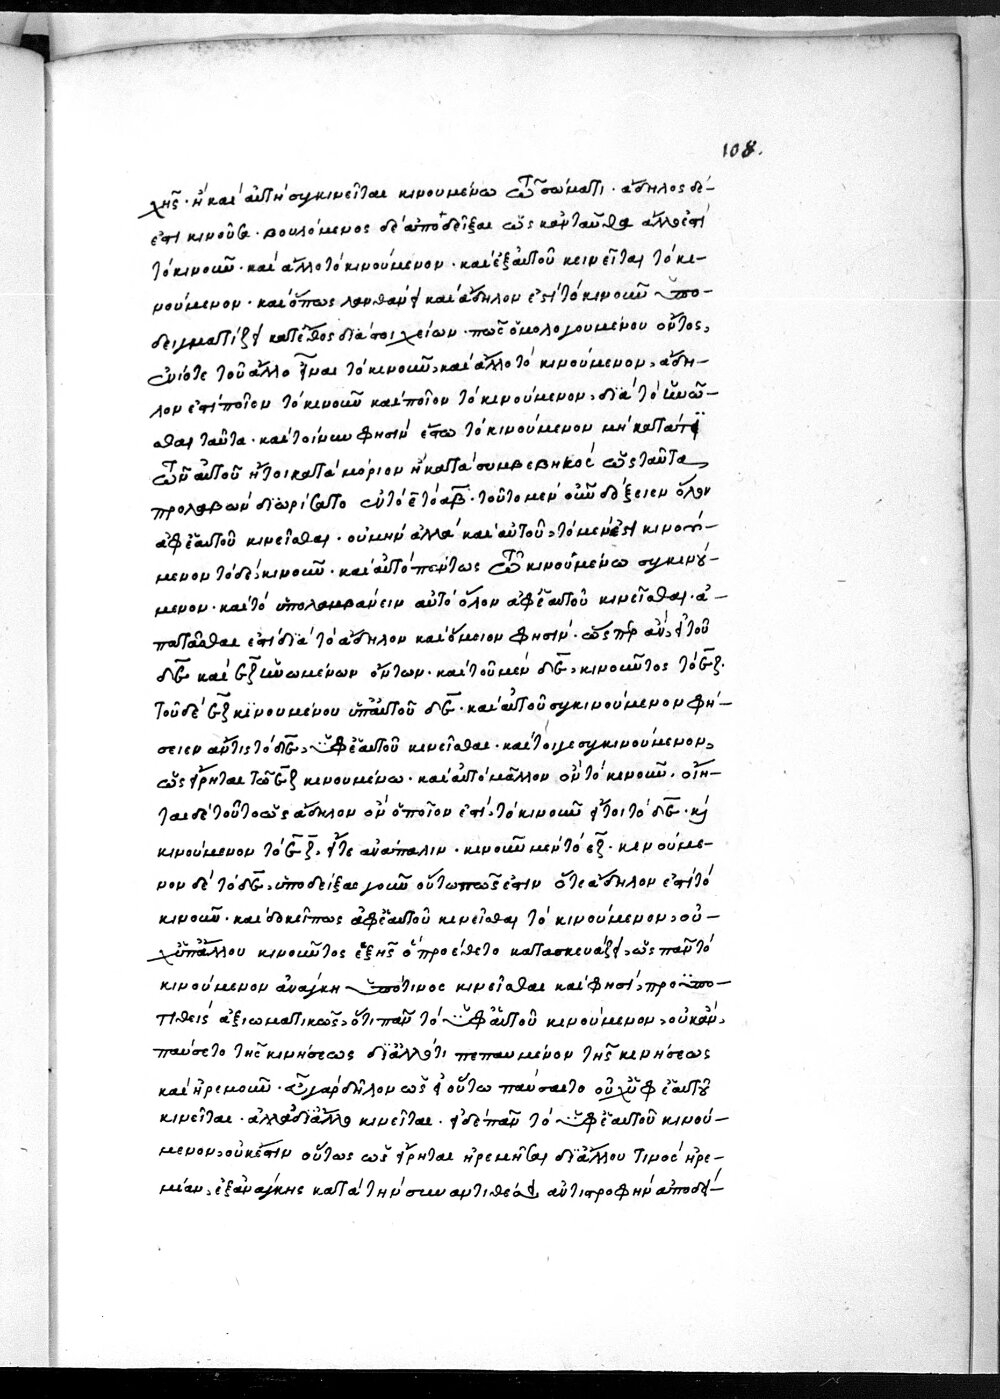 108.
χῆς· ἢ καὶ αὐτὴ συγκινεῖται κινουμένω τῶ σώματι· ἄδηλος δέ
ἐστι κινοῦσα· βουλόμενος δὲ ἀποδεῖξαι ὡς κἀνταῦθα ἄλλο ἐστὶ
τὸ κινοῦν· καὶ ἄλλο τὸ κινούμενον· καὶ ἐξ αὐτοῦ κινεῖται τὸ κι-
νούμενον· καὶ ὅπως λανθάνει καὶ ἄδηλον ἐστὶ τὸ κινοῦν ὑπο-
δειγματίζει κατ' εἶδος διὰ στοιχείων· πῶς ὁμολογουμένου ὄντος,
ἐνίοτε τοῦ ἄλλο εἶναι τὸ κινοῦν, καὶ ἄλλο τὸ κινούμενον, ἄδη-
λον ἐστὶ ποῖον τὸ κινοῦν καὶ ποῖον τὸ κινούμενον, διὰ τὸ ἡνῶ-
σθαι ταῦτα· καὶ τοίνυν φησὶν ἔστω τὸ κινούμενον μὴ κατά τι
τῶν αὐτοῦ ἤτοι κατὰ μόριον ἢ κατὰ συμβεβηκός ὡς ταῦτα
προλαβὼν διωρίσατο ἐν τὸ αβ· τοῦτο μὲν οὖν δόξειεν ὅλον
ἀφ' ἑαυτοῦ κινεῖσθαι· οὐ μὴν ἀλλὰ καὶ αὐτοῦ, τὸ μέν ἐστι κινού-
μενον τὸ δὲ, κινοῦν· καὶ αὐτὸ πάντως τῶ κινουμένω συγκινού-
μενον· καὶ τὸ ὑπολαμβάνειν αὐτὸ ὅλον ἀφ' ἑαυτοῦ κινεῖσθαι· ἀ-
πατᾶσθαι ἐστὶ διὰ τὸ ἄδηλον καὶ ὅμοιον φησίν· ὥσπερ ἂν, εἰ τοῦ
δε καὶ εζ ἡνωμένων ὄντων· καὶ τοῦ μὲν δε, κινοῦντος τὸ εζ·
τοῦ δὲ εζ κινουμένου ὑπ' αὐτοῦ δε· καὶ αὐτοῦ συγκινούμενον φή-
σειεν ἄν τις τὸ δε, ὑφ' ἑαυτοῦ κινεῖσθαι· καί τοι γε συγκινούμενον,
ὡς εἴρηται τῶ εζ κινουμένω· καὶ αὐτὸ μᾶλλον ὂν τὸ κινοῦν· οἴη-
ται δὲ τοῦτο ὡς ἄδηλον ὂν ὁποῖον ἐστὶ, τὸ κινοῦν εἴτοι τὸ δε· καὶ
κινούμενον τὸ εζ, εἴτε ἀνάπαλιν· κινοῦν μὲν τὸ εζ· κινούμε-
νον δὲ τὸ δε, ὑποδείξας γοῦν οὕτω πῶς ἐστιν ὅτε ἄδηλον ἐστὶ τὸ
κινοῦν· καὶ δοκεῖ πως ἀφ' ἑαυτοῦ κινεῖσθαι τὸ κινούμενον, οὐ-
χ ὑπ' ἄλλου κινοῦντος ἑξῆς ὃ προέθετο κατασκευάζει, ὡς πᾶν τὸ
κινούμενον ἀνάγκη ὑπό τινος κινεῖσθαι καὶ φησὶ, προϋπο-
τιθεὶς ἀξιωματικῶς, ὅτι πᾶν τὸ ὑφ' ἑαυτοῦ κινούμενον, οὐκ ἂν,
παύσετο τῆς κινήσεως δι' ἄλλό τι πεπαυμένον τῆς κινήσεως
καὶ ἠρεμοῦν· ἦν γὰρ δῆλον ὡς εἰ οὕτω παύσαιτο οὐχ ὑφ' ἑαυτοῦ
κινεῖται· ἀλλὰ δι' ἄλλο κινεῖται· εἰ δὲ πᾶν τὸ ὑφ' ἑαυτοῦ κινού-
μενον, οὐκ ἔστιν οὕτως ὡς εἴρηται ἠρεμῆσαι δι' ἄλλου τινὸς ἠρε-
μίαν, ἐξ ἀνάγκης κατὰ τὴν σὺν ἀντιθέσει ἀντιστροφὴν ἀποδεί-